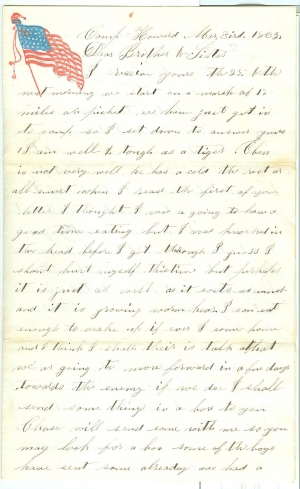 Camp Howard Mar 3rd. 1862
Dear Brother & Sister
I receive yours the 25 & the
next morning we start on a march of 12
miles on picket we have just got in
to camp so I set down to answer yours
I am well & tough as a tiger Eben
is not very well he has a cold the rest are
all smart when I read the first of your
letter I thought I was a going to have a
good time eating but I was knocked in
the head before I got through I guess I
shant hurt myself this time but perhaps
it is just as well as it costs so much
and it is growing warm hear I can eat
enough to make up if ever I come home
and I think I shall their is talk that
we are going to move forward in a few days
towards the enemy if we do I shall
send some things in a box to you
Chase will send some with me so you
may look for a box some of the boys
have sent some already we had a